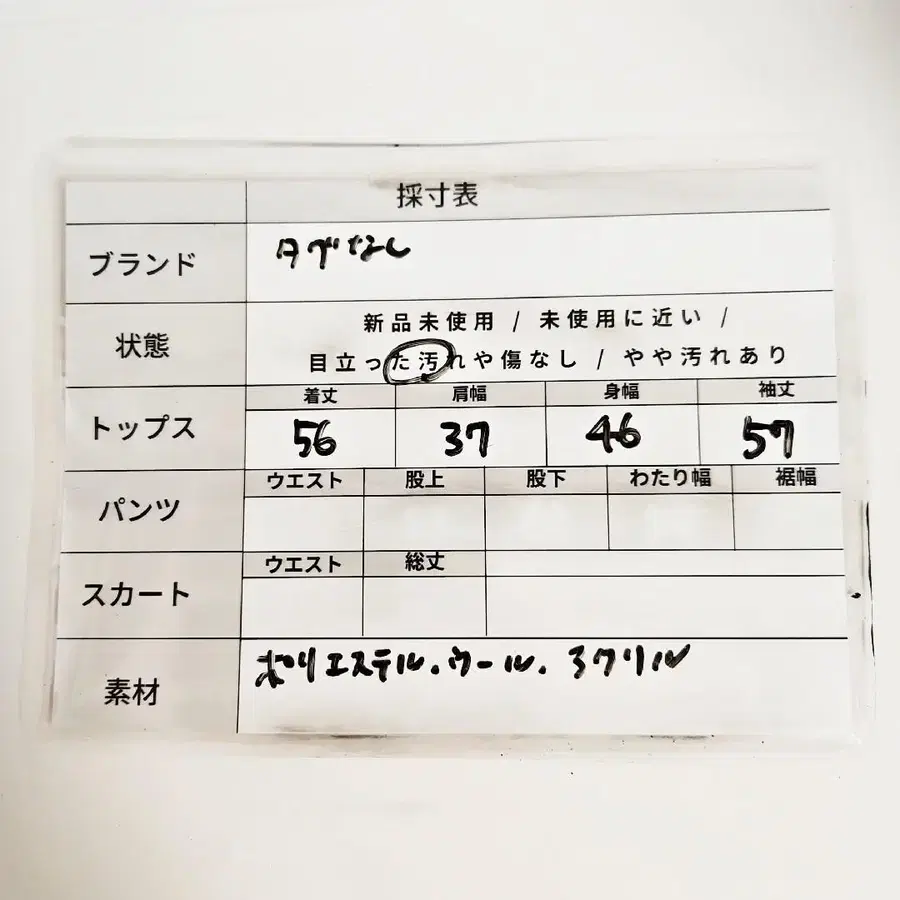 採寸表
ブランド タグなし
状態 新品未使用 / 未使用に近い /
目立った汚れや傷なし / やや汚れあり
着丈 肩幅 身幅 袖丈
トップス 56 37 46 57
ウエスト 股上 股下 わたり幅 裾幅
パンツ
ウエスト 総丈
スカート
素材 ポリエステル・ウール・アクリル